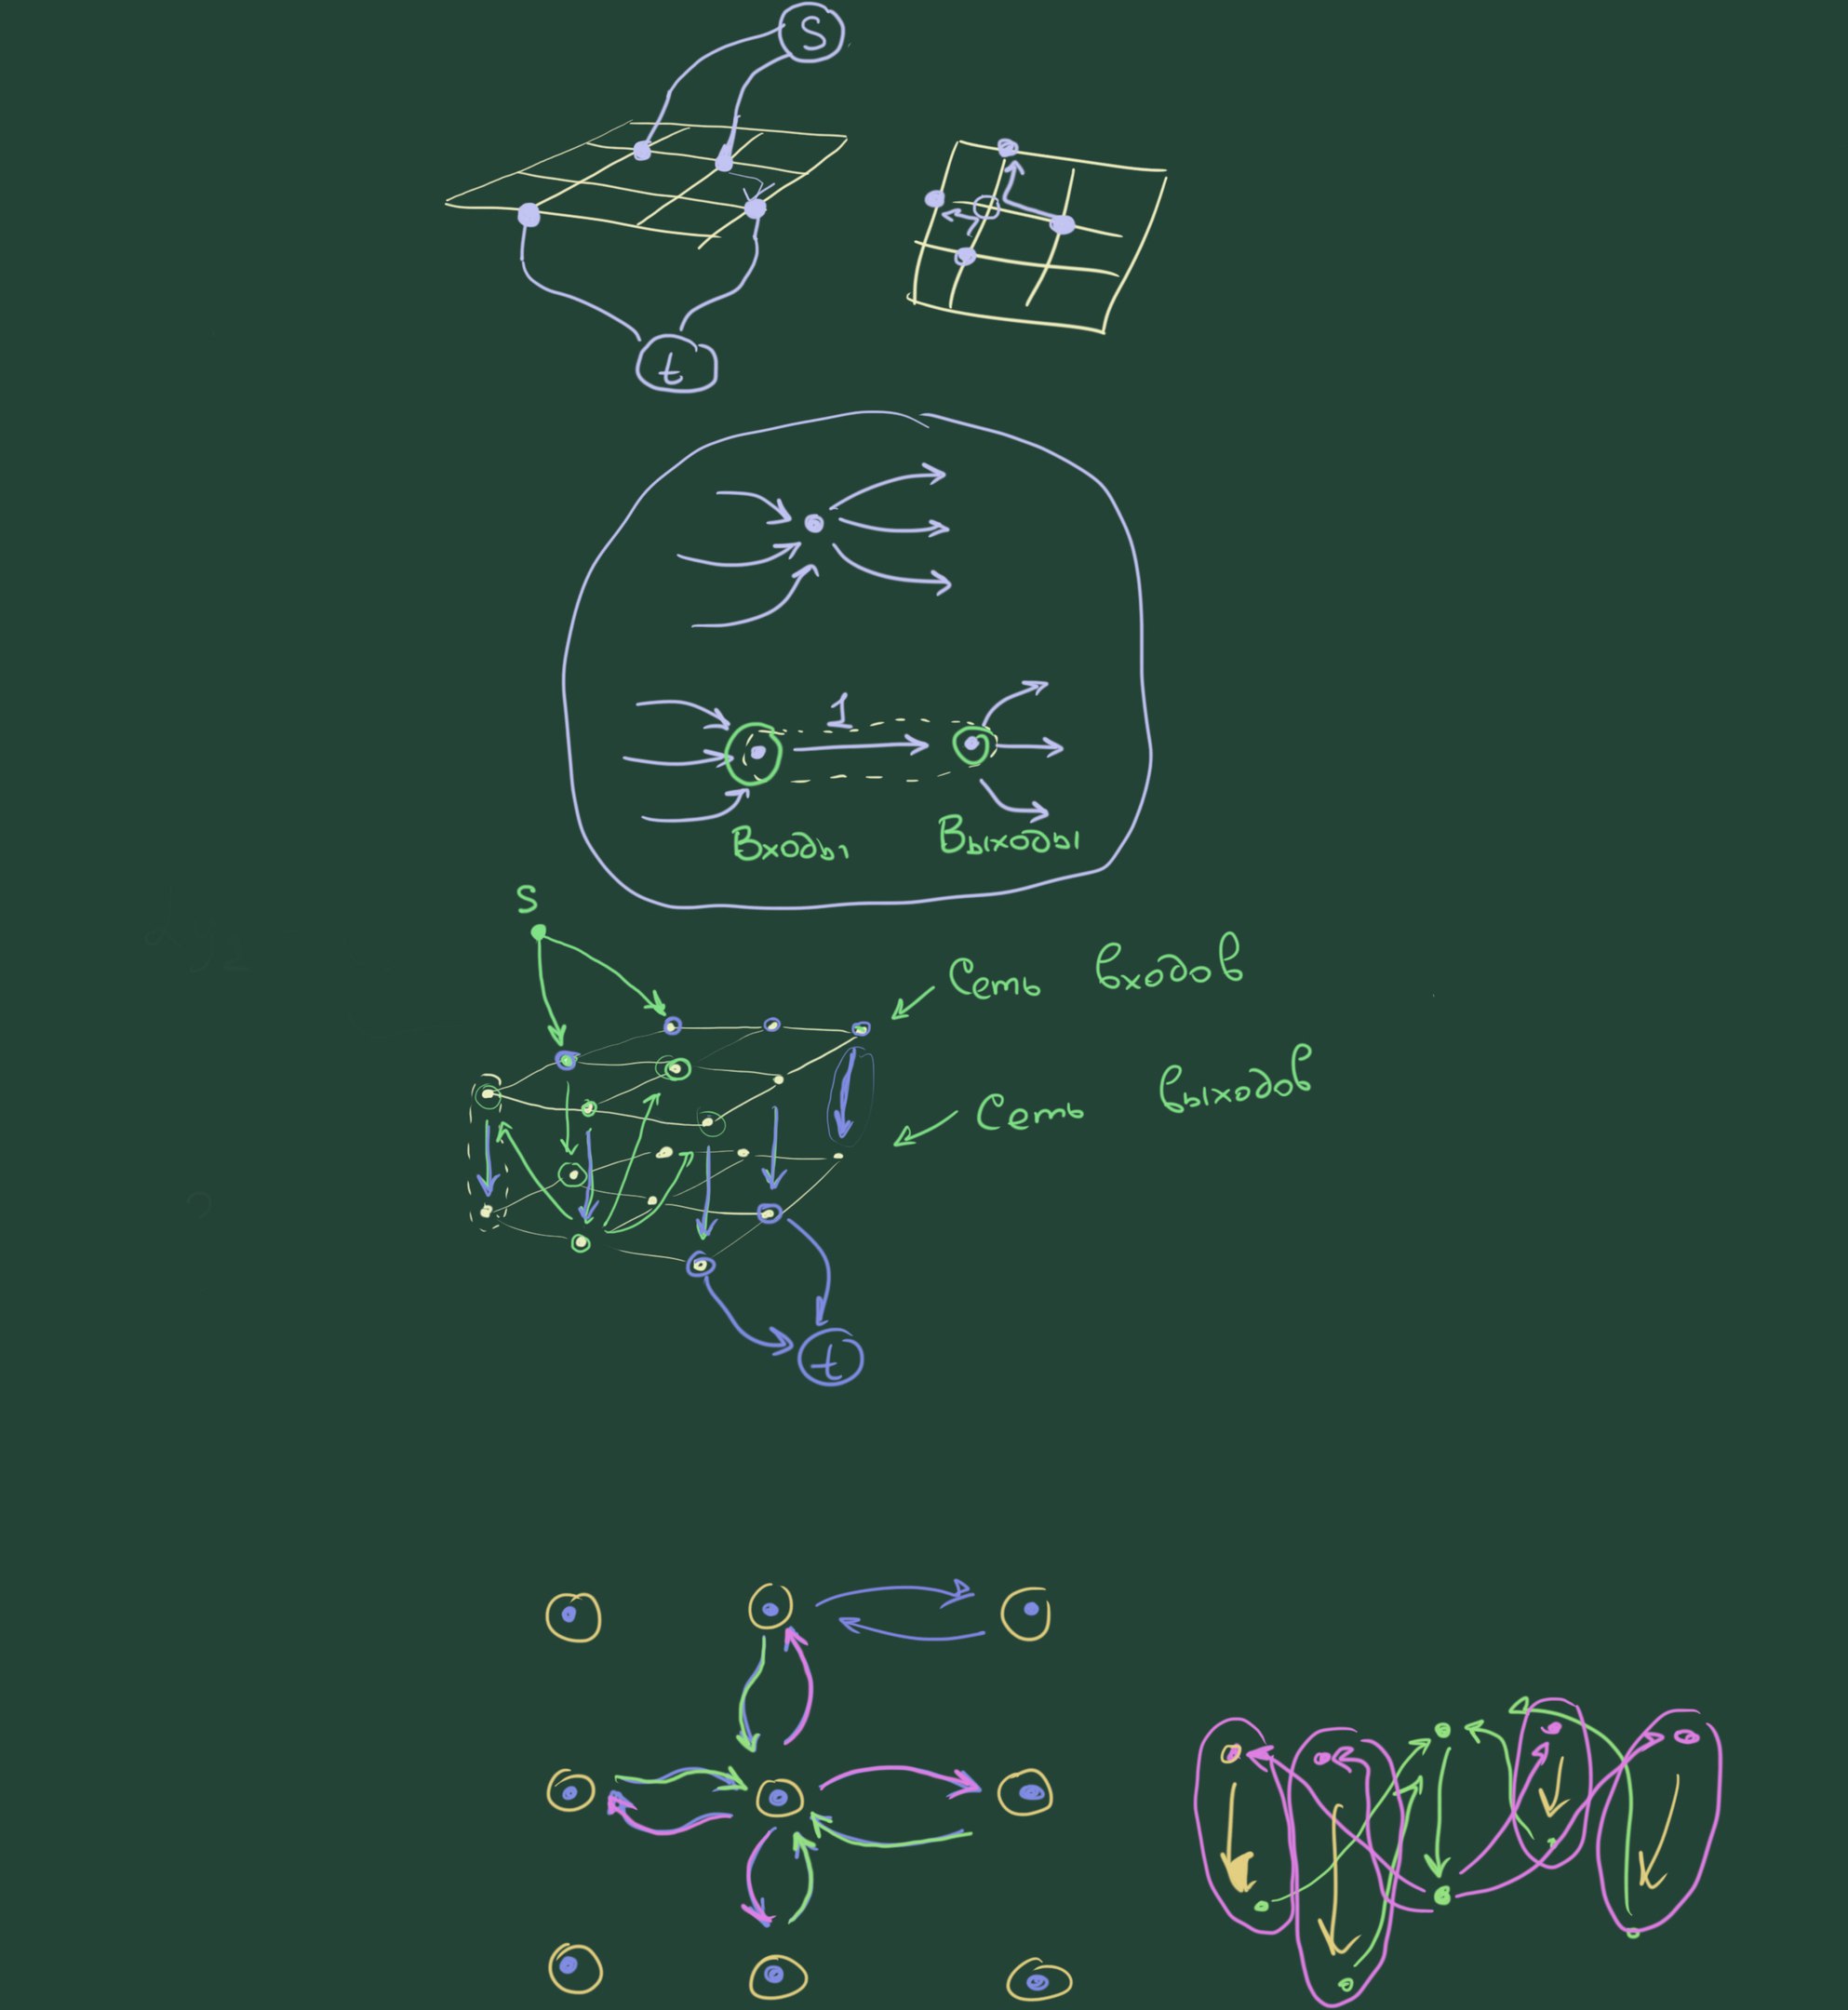 S
t
1
Входы
Выходы
S
Сеть входов
Сеть выходов
t